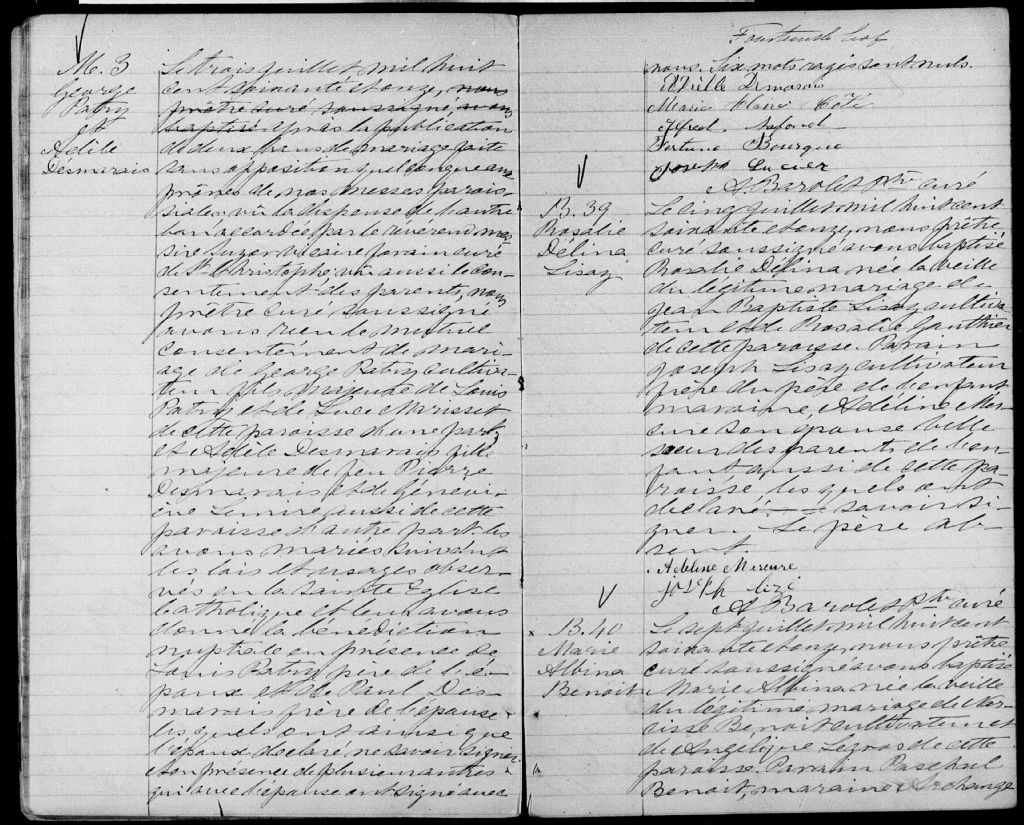 M. 3
George
Patry
et
Adèle
Desmarais
Le trois juillet mil huit
cent soixante et onze, nous
prêtre curé soussigné avons
baptisé après la publication
de deux bans de mariage faite
sans opposition quelconque aux
prônes de nos messes parois-
siales vû la dispense de l'autre
ban accordée par le révérend mes-
sire curé
de St Christophe vû aussi le con-
sentement des parents, nous
prêtre curé soussigné
avons reçu le mutuel
consentement de mari-
age de George Patry cultiva-
teur fils majeur de Louis
Patry et de Luce Morisset
de cette paroisse d'une part,
et Adèle Desmarais fille
majeure de feu Pierre
Desmarais et de Génevi-
ève Lemire aussi de cette
paroisse d'autre part les
avons mariés suivant
les lois et usages obser-
vés en la Sainte Eglise
Catholique et leur avons
donné la bénédiction
nuptiale en présence de
Louis Patry père de l'é-
poux et de Paul Des-
marais frère de l'épouse
lesquels ont ainsi que
l'époux déclaré ne savoir signer
et en présence de plusieurs autres
qui avec l'épouse ont signé avec
Fourteenth leaf
nous. Six mots rayés sont nuls.
Adèlle Demarais
Marie Claire Côté
Alfred Lafond
Fortuna Bourque
Joseph Lucier
A Barolet Ptre curé
B. 39
Rosalie
Délina
Lisay
Le cinq juillet mil huit cent
soixante et onze, nous prêtre
curé soussigné avons baptisé
Rosalie Délina née la veille
du légitime mariage de
Jean Baptiste Lisay cultiva-
teur et de Rosalie Gauthier
de cette paroisse. Parrain
Joseph Lisay cultivateur
frère du père de l'enfant
marraine, Adéline Mer-
cure son épouse belle
soeur des parents de l'en-
fant aussi de cette pa-
roisse, lesquels ont
déclaré savoir si-
gner. Le père ab-
sent.
Adeline Mercure
joseph lizé
A Barolet Ptre curé
B. 40
Marie
Albina
Benoit
Le sept juillet mil huit cent
soixante et onze, nous prêtre
curé soussigné avons baptisé
Marie Albina née la veille
du légitime mariage de Nar-
cisse Benoit cultivateur et
de Angélique Legros de cette
paroisse. Parrain Paschal
Benoit, marraine Archange